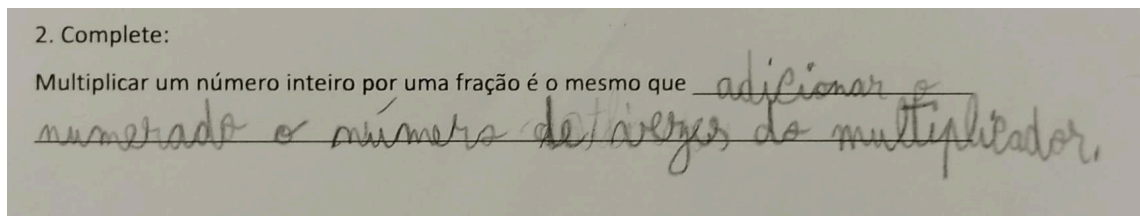 2. Complete:
Multiplicar um número inteiro por uma fração é o mesmo que adicionar o
numerado o número de vezes do multiplicador.